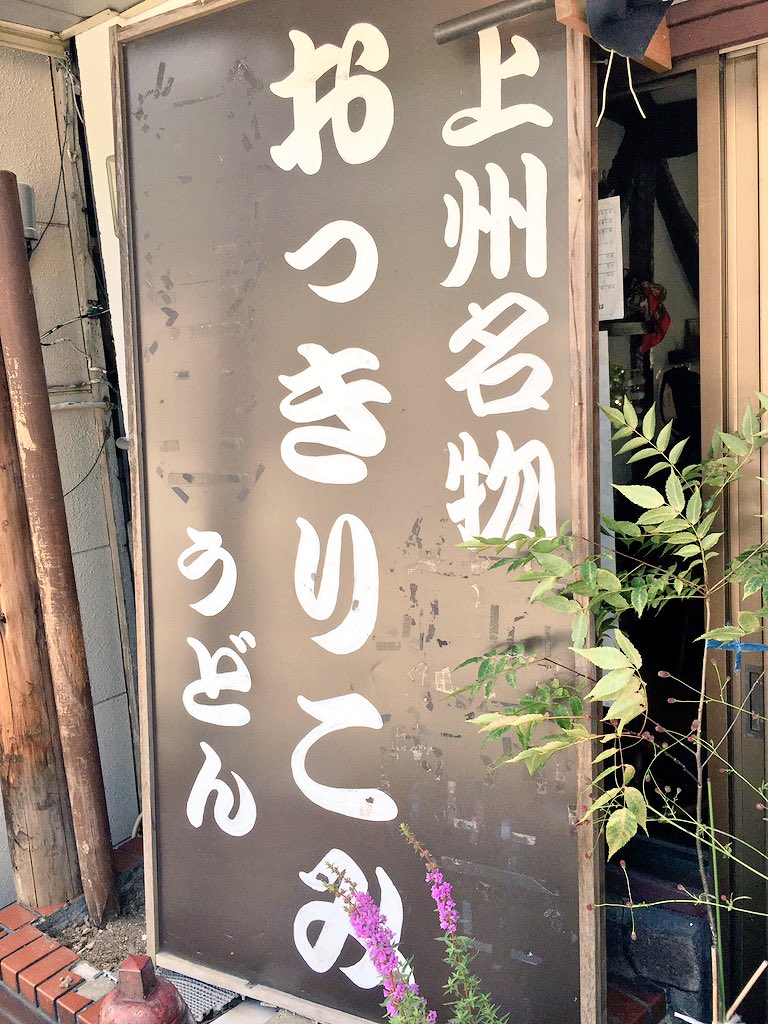 上州名物
おっきりこみ
うどん